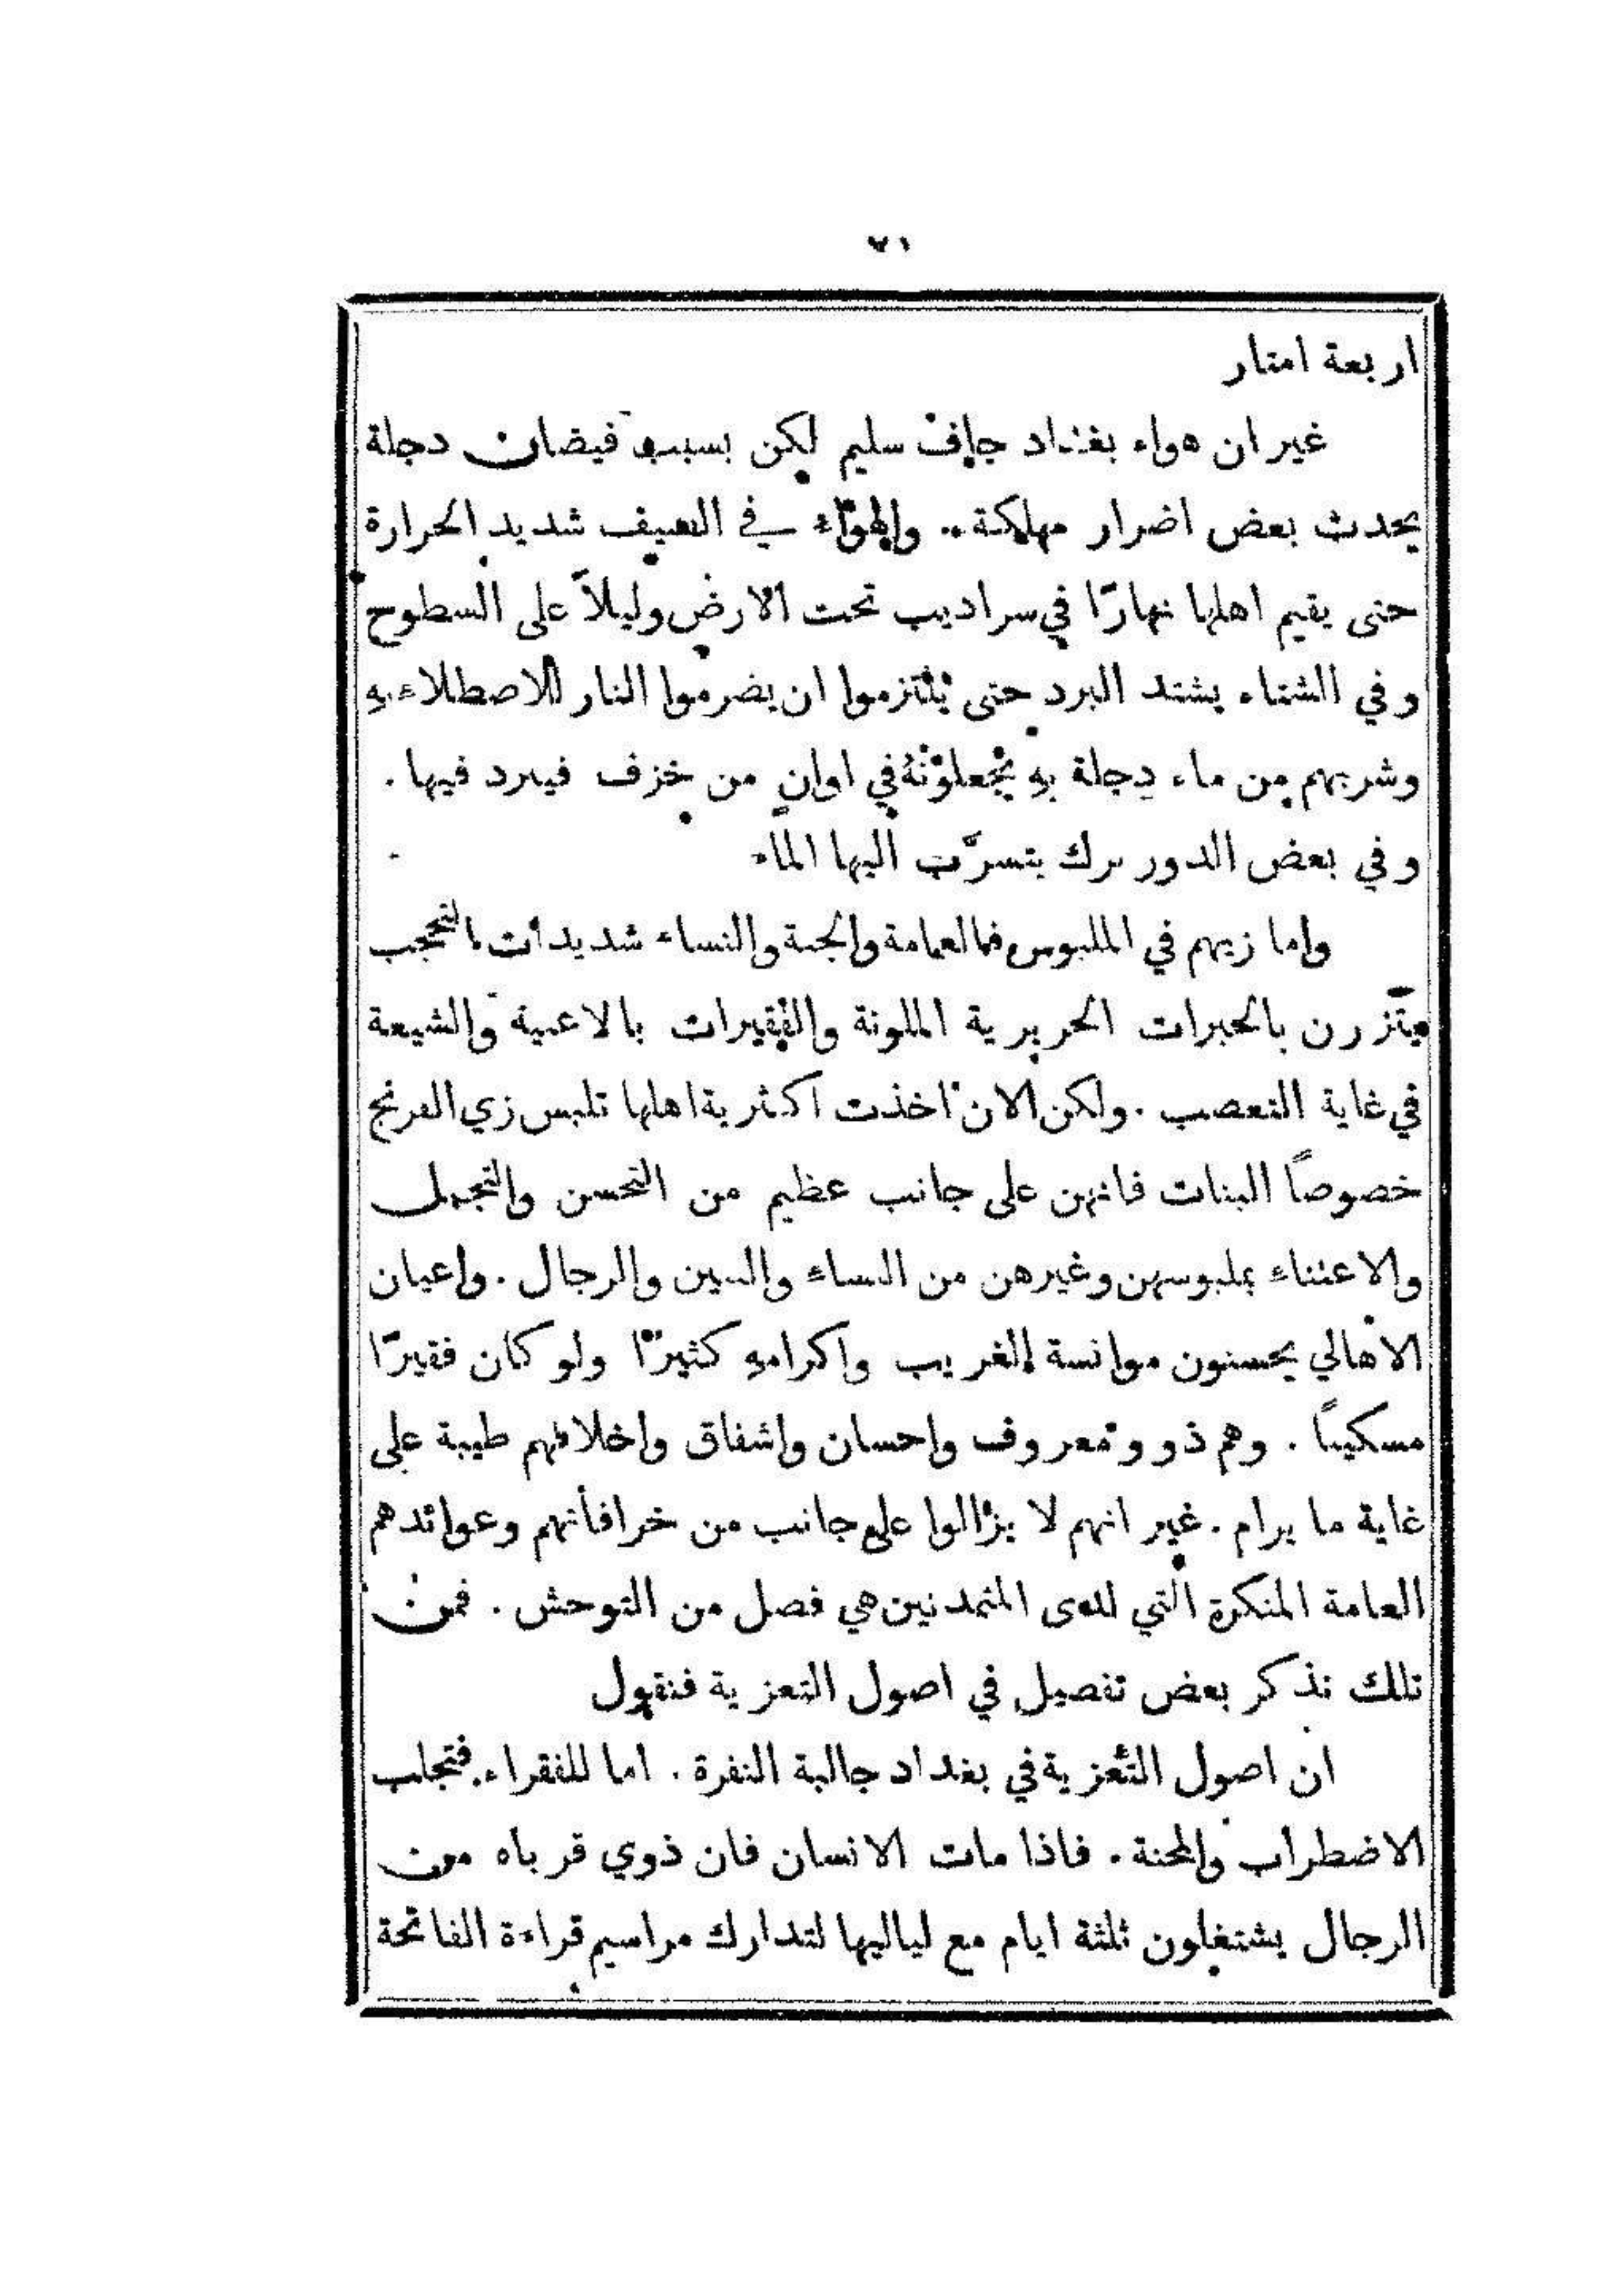 ٧١
اربعة امتار
غير ان هواء بغداد جاف سليم لكن بسبب فيضان دجلة
يحدث بعض اضرار مهلكة . والهواء في الصيف شديد الحرارة
حتى يقيم اهلها نهارًا في سراديب تحت الارض وليلاً على السطوح
وفي الشتاء يشتد البرد حتى يلتزموا ان يضرموا النار للاصطلاء بهِ
وشربهم من ماء دجلة بهِ يجعلونهُ في اوانٍ من خزف فيبرد فيها .
وفي بعض الدور برك يتسرَّب اليها الماء
واما زيهم في الملبوس فالعمامة والجبة والنساء شديدات التحجب
يتَّزرن بالحبرات الحريرية الملونة والفقيرات بالاعبية والشيعة
في غاية التعصب . ولكن الان اخذت اكثرية اهلها تلبس زي الفرنج
خصوصًا البنات فانهن على جانب عظيم من التحسن والتجمل
والاعتناء بملبوسهن وغيرهن من النساء والبنين والرجال . واعيان
الاهالي يحسنون موانسة الغريب واكرامهِ كثيرًا ولو كان فقيرًا
مسكينًا . وهم ذوو معروف واحسان واشفاق واخلاقهم طيبة على
غاية ما يرام . غير انهم لا يزالوا على جانب من خرافاتهم وعوائدهم
العامة المنكرة التي لدى المتمدنين هي فصل من التوحش . فمن
تلك نذكر بعض تفصيل في اصول التعزية فنقول
ان اصول التعزية في بغداد جالبة النفرة . اما للفقراء فتجلب
الاضطراب والمحنة . فاذا مات الانسان فان ذوي قرباه من
الرجال يشتغلون ثلثة ايام مع لياليها لتدارك مراسيم قراءة الفاتحة